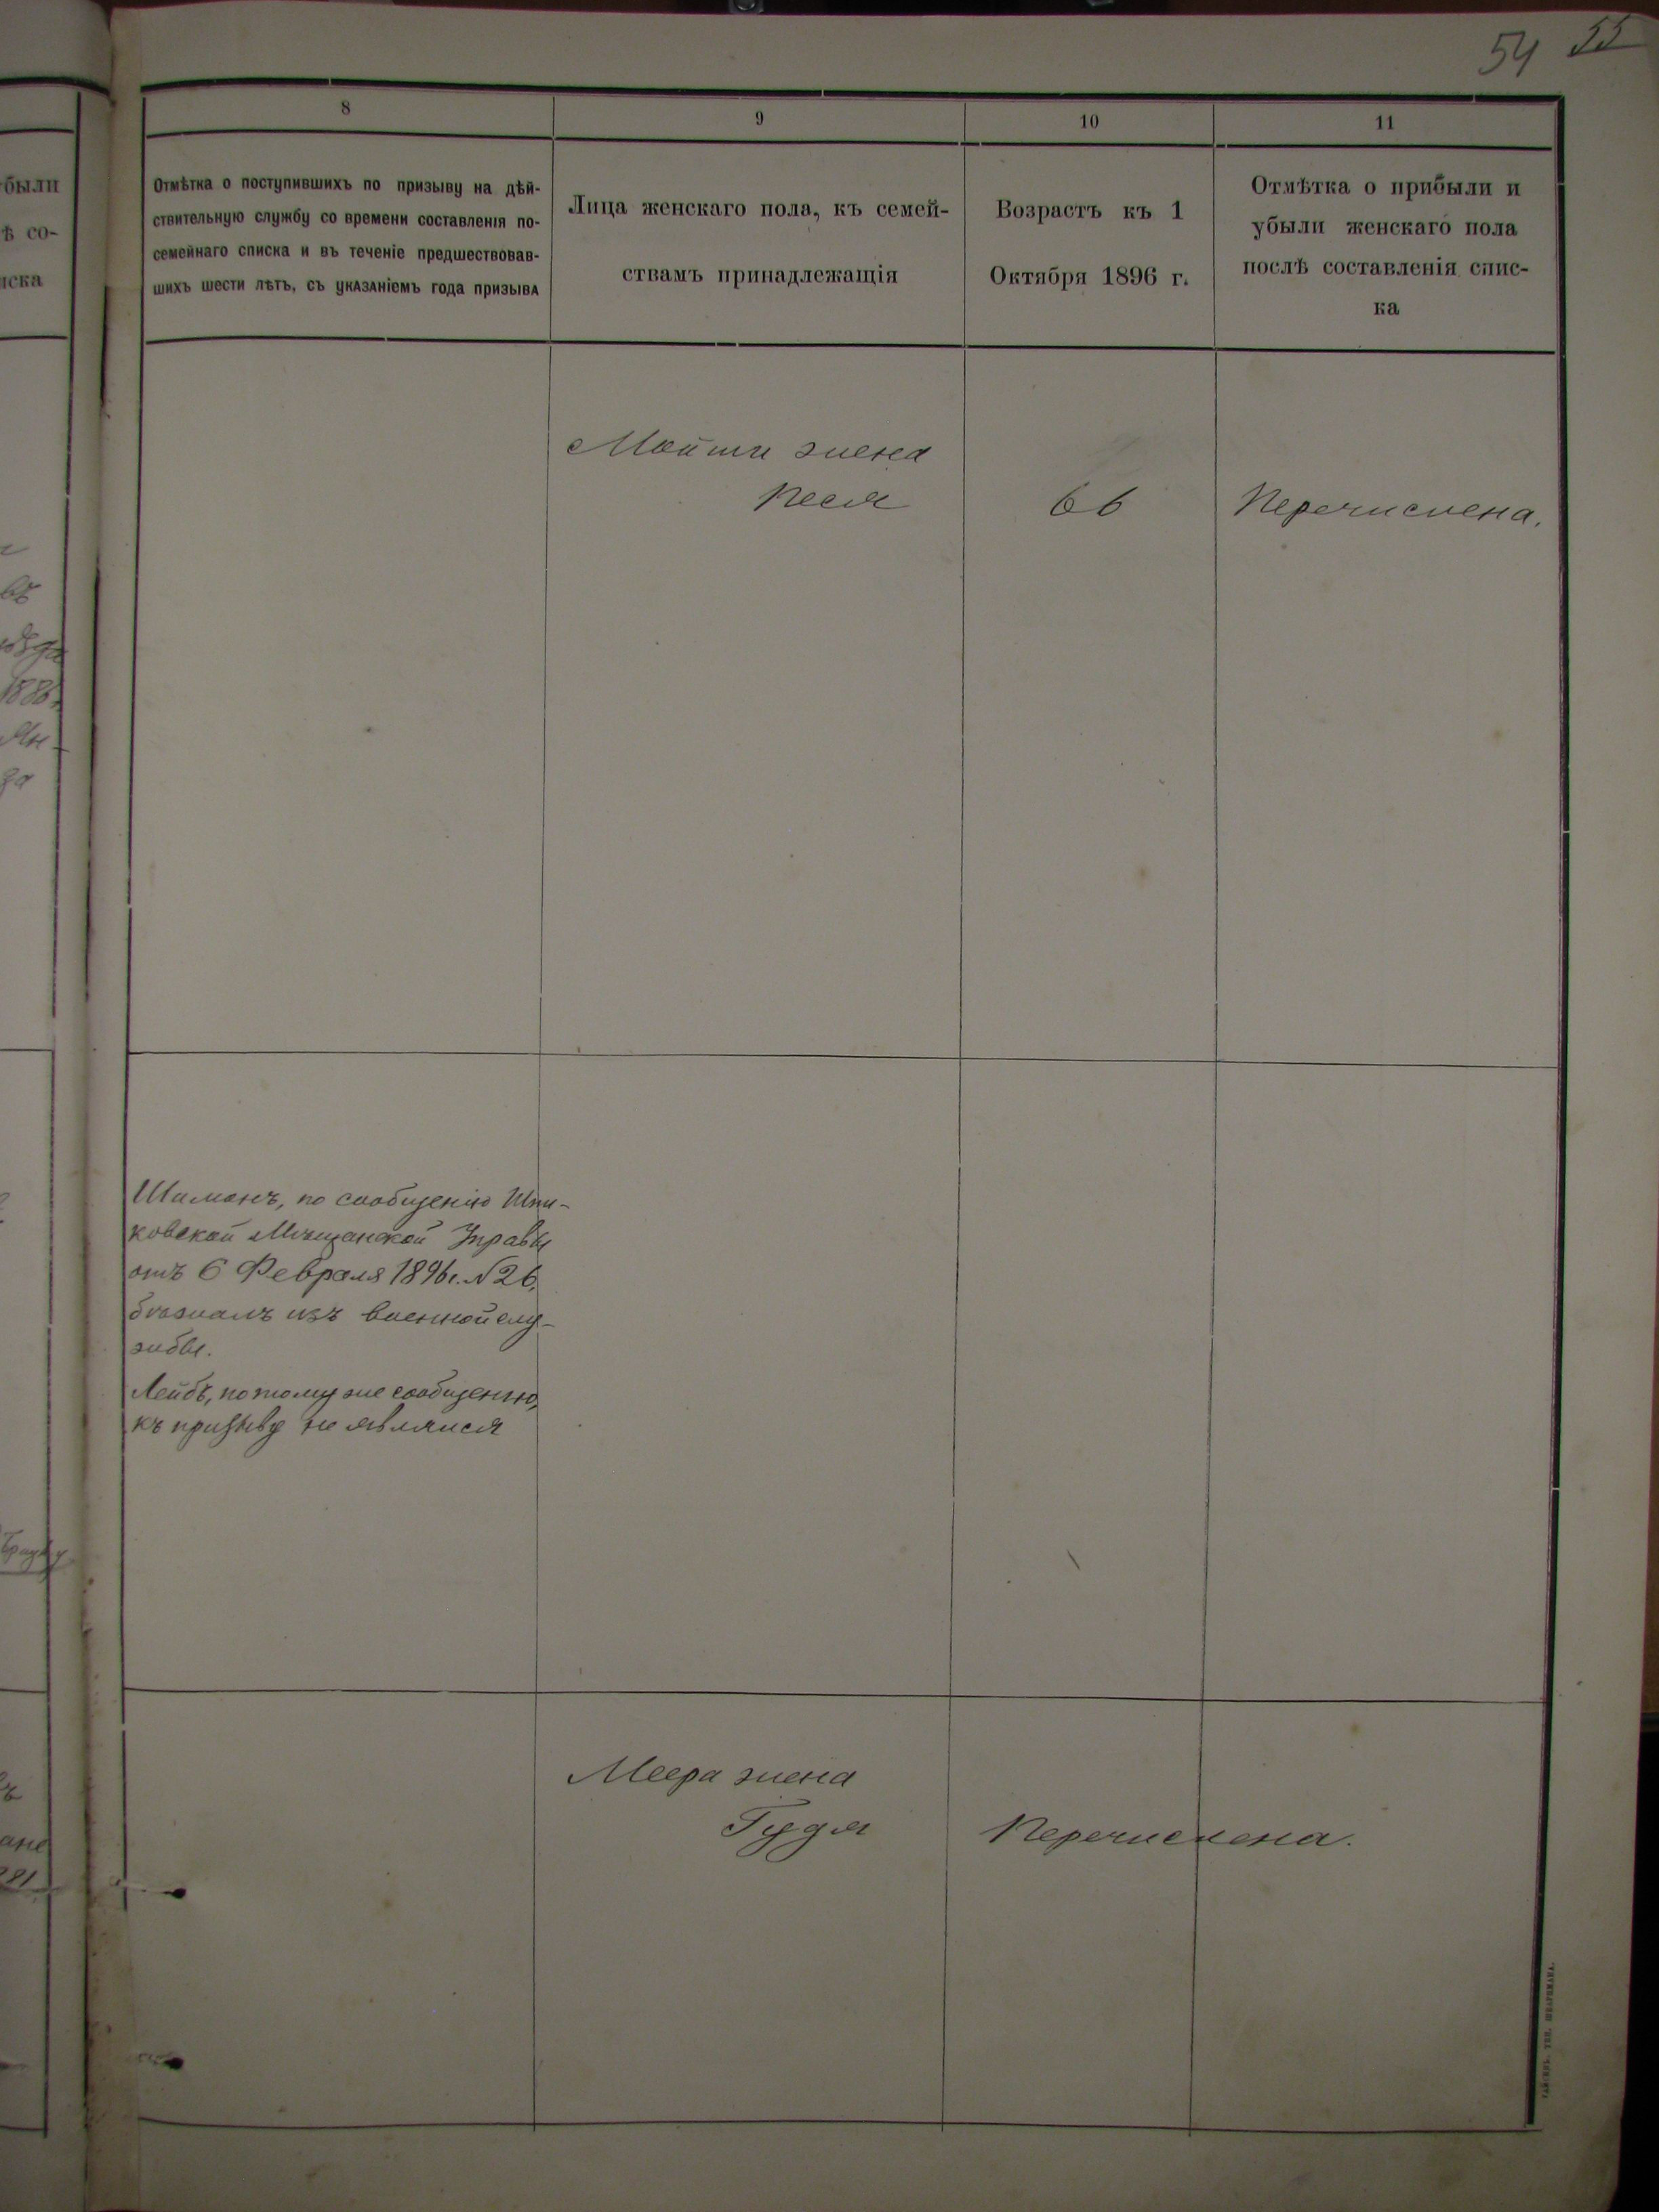 54 55
8
9
10
11
Отмѣтка о поступившихъ по призыву на дѣй-
ствительную службу со времени составленія по-
семейнаго списка и въ теченіе предшествовав-
шихъ шести лѣтъ, съ указаніемъ года призыва
Лица женскаго пола, къ семей-
ствамъ принадлежащія
Возрастъ къ 1
Октября 1896 г.
Отмѣтка о прибыли и
убыли женскаго пола
послѣ составленія спис-
ка
были
ѣ со-
иска
въ
1886
да
ане
281
Мойши жена
Песя
66
Перечислена.
Шимонъ, по сообщенію Шпи-
ковской Мѣщанской Управы
отъ 6 Февраля 1896 г. № 26,
бѣжалъ изъ военной слу-
жбы.
Лейбъ, по тому же сообщенію,
къ призыву не являлся
Меера жена
Гудя
Перечислена.